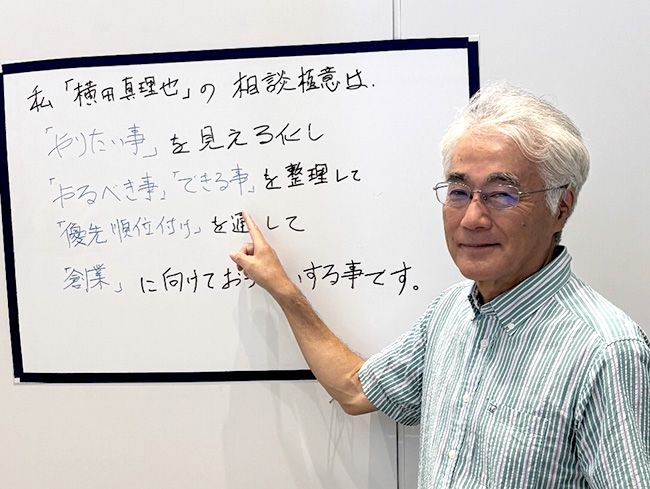 私「横田真理也」の 相談極意は、
「やりたい事」を見える化し
「やるべき事」「できる事」を整理して
「優先順位付け」を通して
「創業」に向けてお する事です。